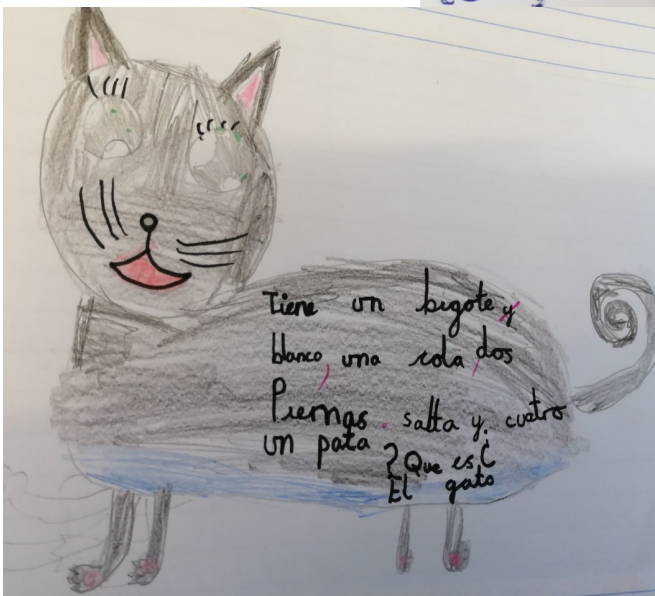 Tiene un bigote y
blanco, una cola, dos
Piernas. salta y. cuatro
un pata
?Que es¿
El gato